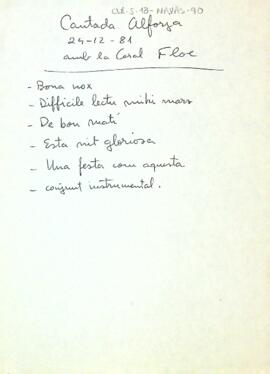 CUL-5-18-NAVAS-90
Cantada Alforja
24-12-81
amb la Coral Floc
- Bona nox
- Difficile lectu mihi mars
- De bon matí
- Esta nit gloriosa
- Una festa com aquesta
- conjunt instrumental.